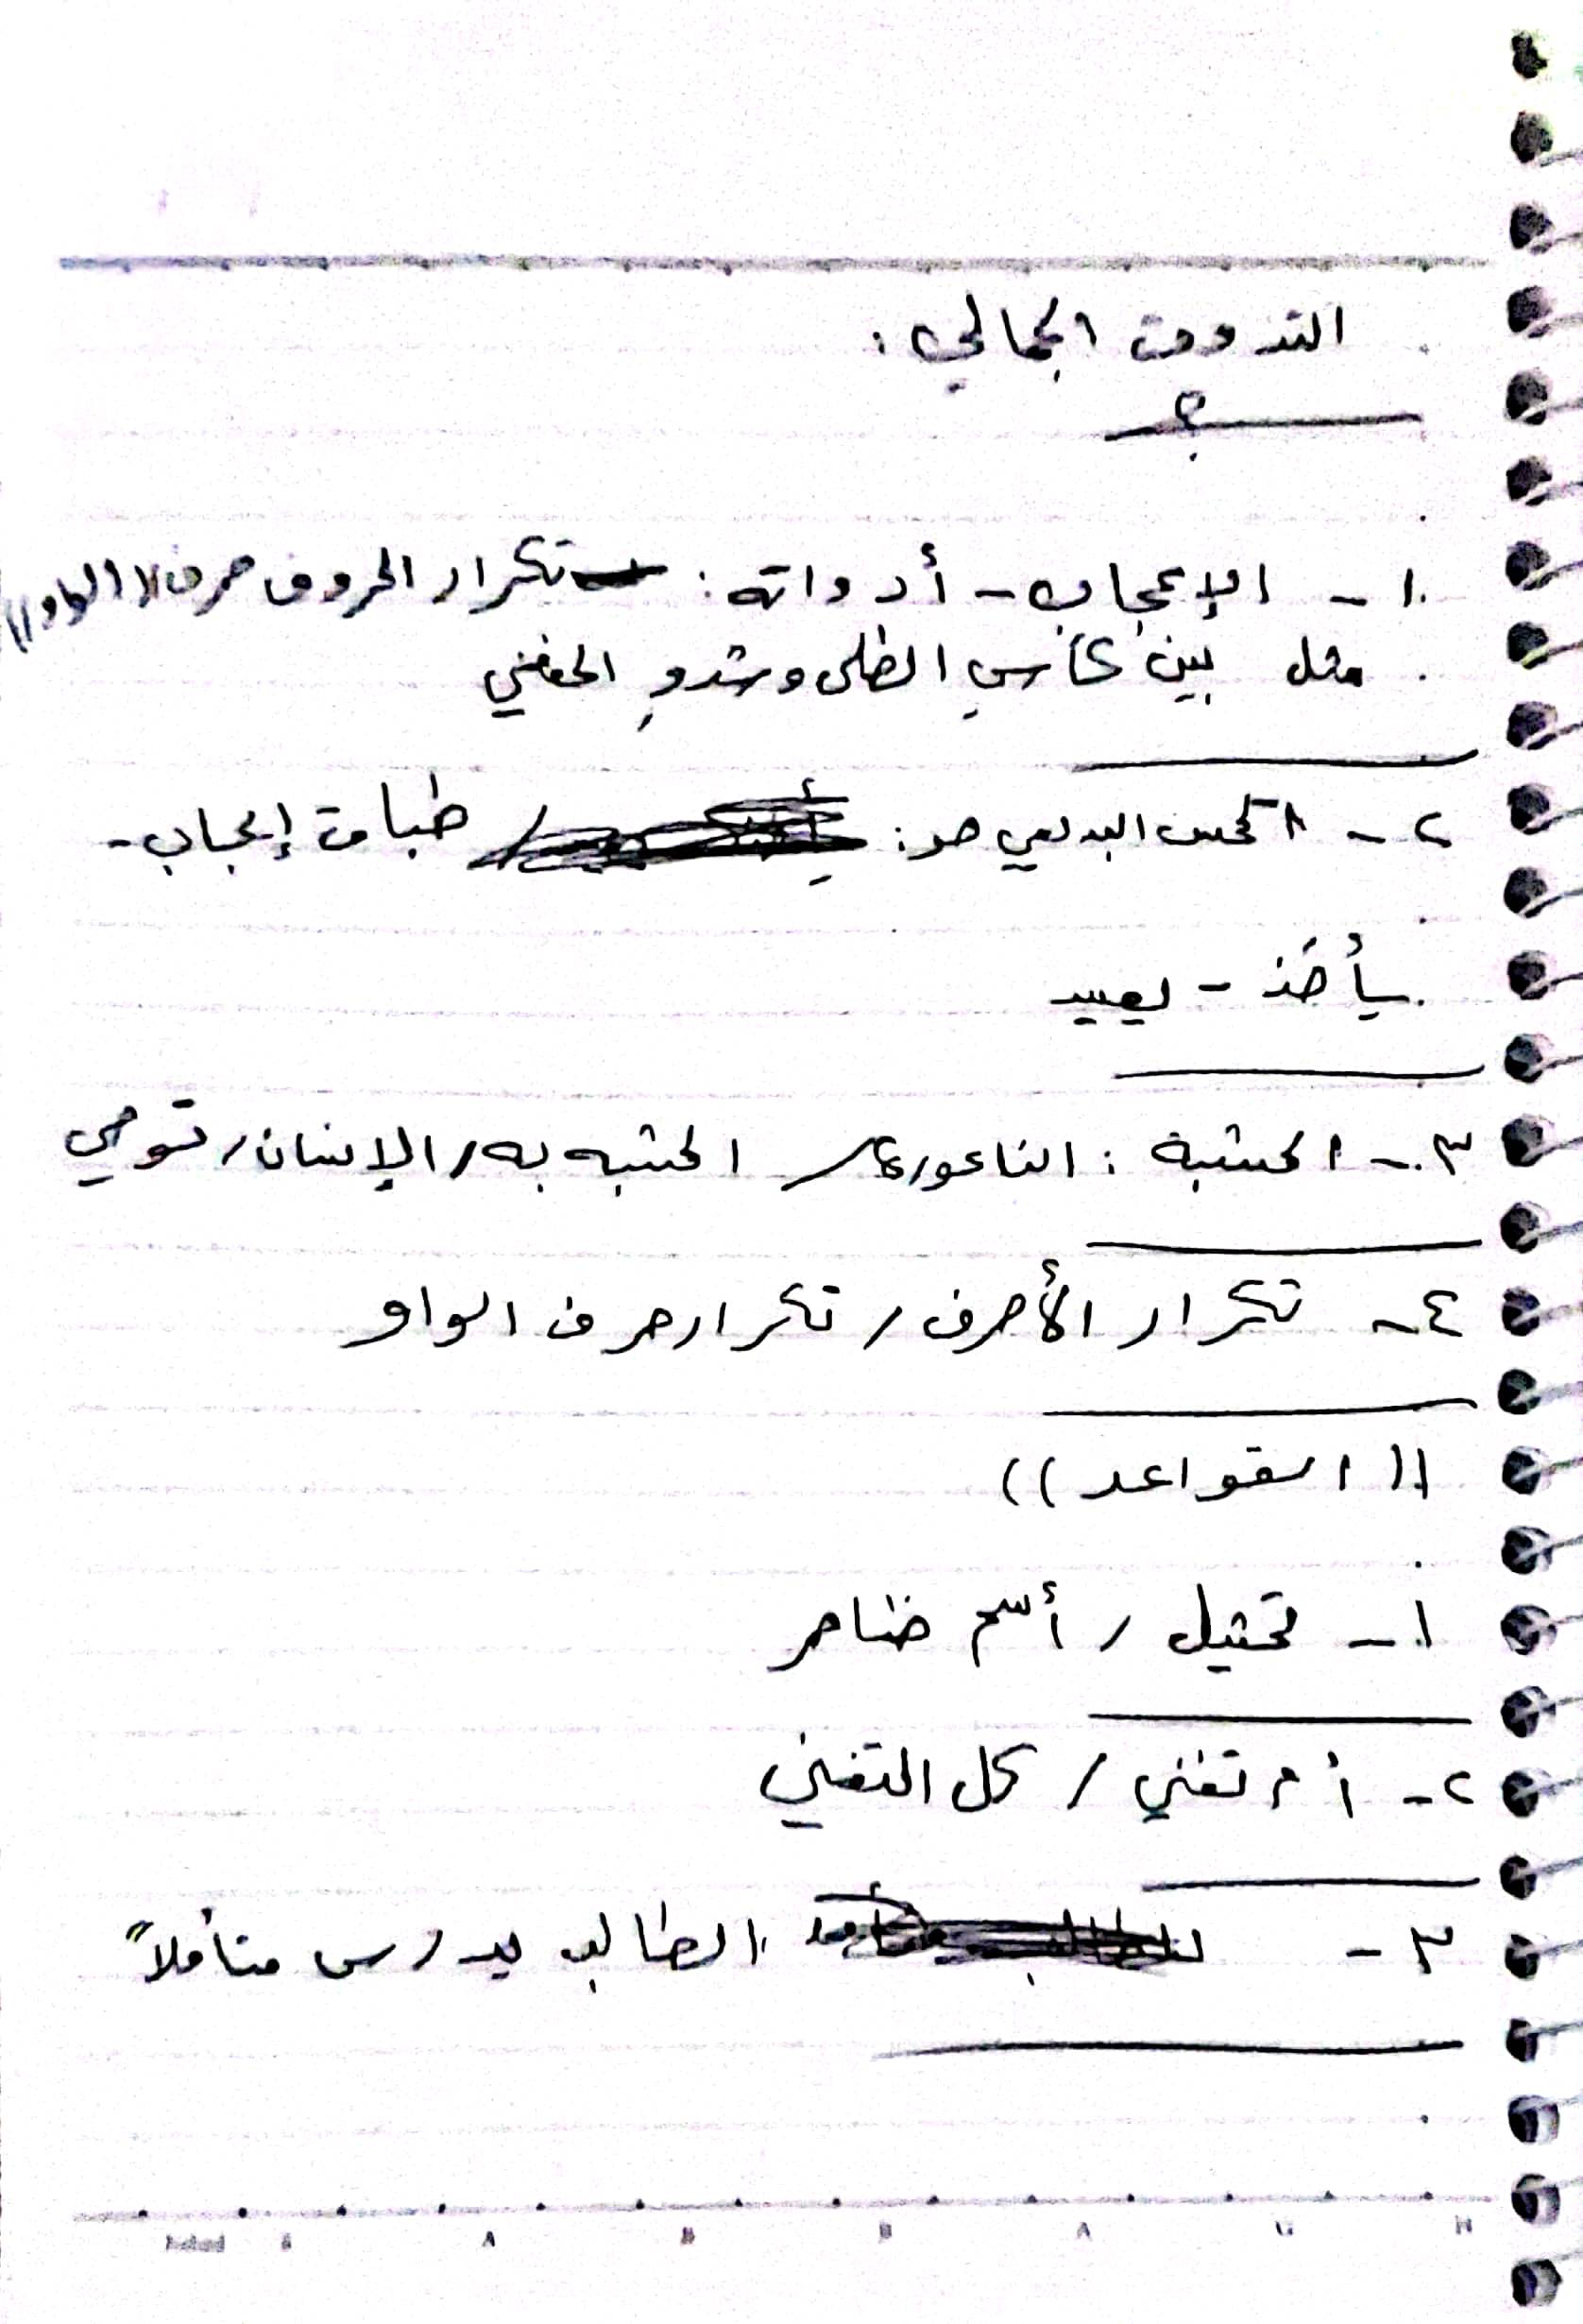 التذوق الجمالي:
١ - الإعجاب - أدواته: تكرار الحروف حرف ((الواو))
مثل بين كأسِ الطلى وشدوِ المغني
٢ - المحسن البديعي هو: طباق إيجاب -
يأخذ - يعيد
٣ - المشبة: الناعورة / المشبه به / الإنسان /
٤ - تكرار الأحرف / تكرار حرف الواو
((القواعد))
١ - تمثيل / أسم ظاهر
٢ - تغني / كل التغني
٣ - الطالب يدرس متأملاً